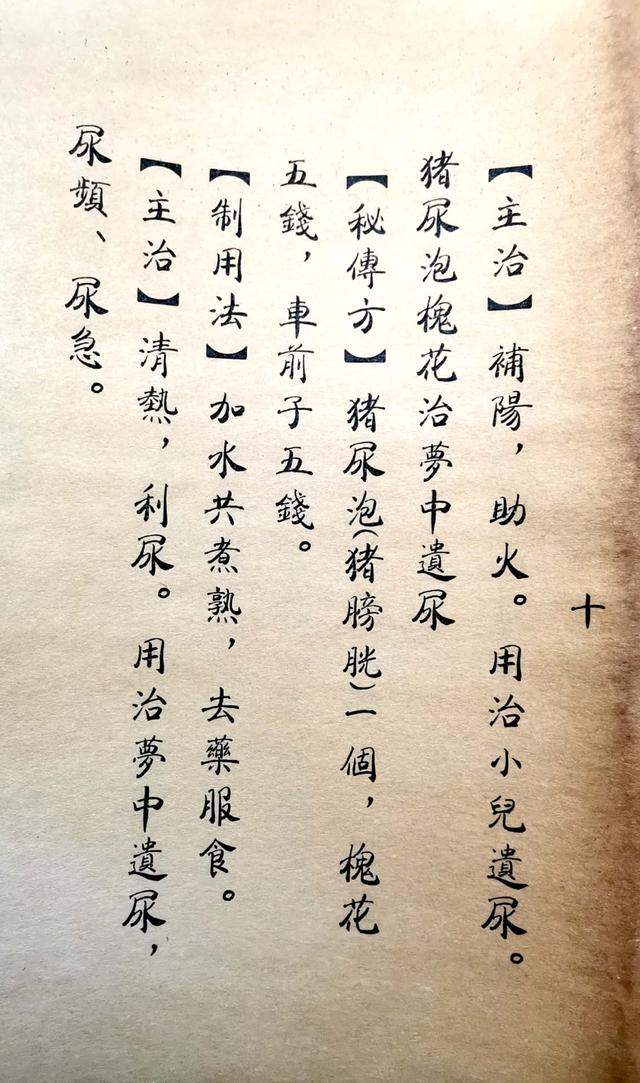 十
【主治】補陽，助火。用治小兒遺尿。
猪尿泡槐花治夢中遺尿
【秘傳方】猪尿泡(猪膀胱)一個，槐花
五錢，車前子五錢。
【制用法】加水共煮熟，去藥服食。
【主治】清熱，利尿。用治夢中遺尿，
尿頻、尿急。